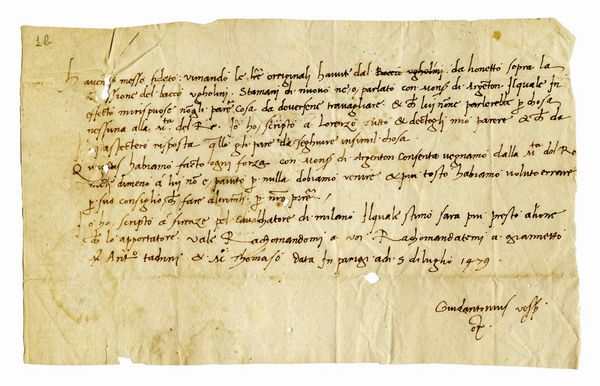 18
havendo messo fidato vi mando le lre originali havute dal Baccio ugholini da honetto sopra la
sessione del baccio ugholini. Stamani di nuovo ne ho parlato con mons di Argenton Il quale In
effecto mi rispuose nogli pare cosa da doversene travagliare & che lui none parlerebbe p chosa
nessuna alla Mta del Re. Io ho scripto a Lorenzo tutto & dectogli mio parere & che da
lui aspectero risposta allo gli pare da seghuire in simil chosa.
habbiamo facto ogni forza con mons di Argenton consenta vegnamo dalla Mta del Re
dimeno a lui no e paruto p nulla dobbiamo venire & piu tosto habbiamo voluto errare
p suo consiglio che fare altrimenti p nro parere
Io ho scripto a firenze pel cavalchatore di milano Il quale stimo sara piu presto
che lo apportatore vale Rachomandomi a voi Rachomandatemi a giannetto
Anto tadini & Thomaso data In parigi adi 5 di luglio 1479.
Guidantonius vesp
or.